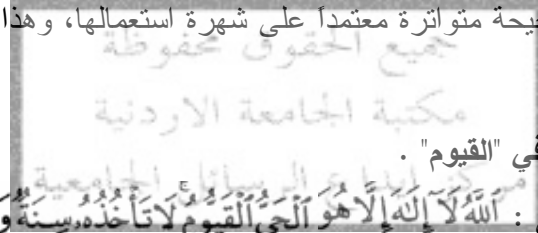 يحة متواترة معتمداً على شهرة استعمالها، وهذا
جميع الحقوق محفوظة
مكتبة الجامعة الاردنية
في "القيوم" .
مركز ايداع الرسائل الجامعية
: ٱللَّهُ لَآ إِلَٰهَ إِلَّا هُوَ ٱلْحَىُّ ٱلْقَيُّومُ ۚ لَا تَأْخُذُهُۥ سِنَةٌ وَ